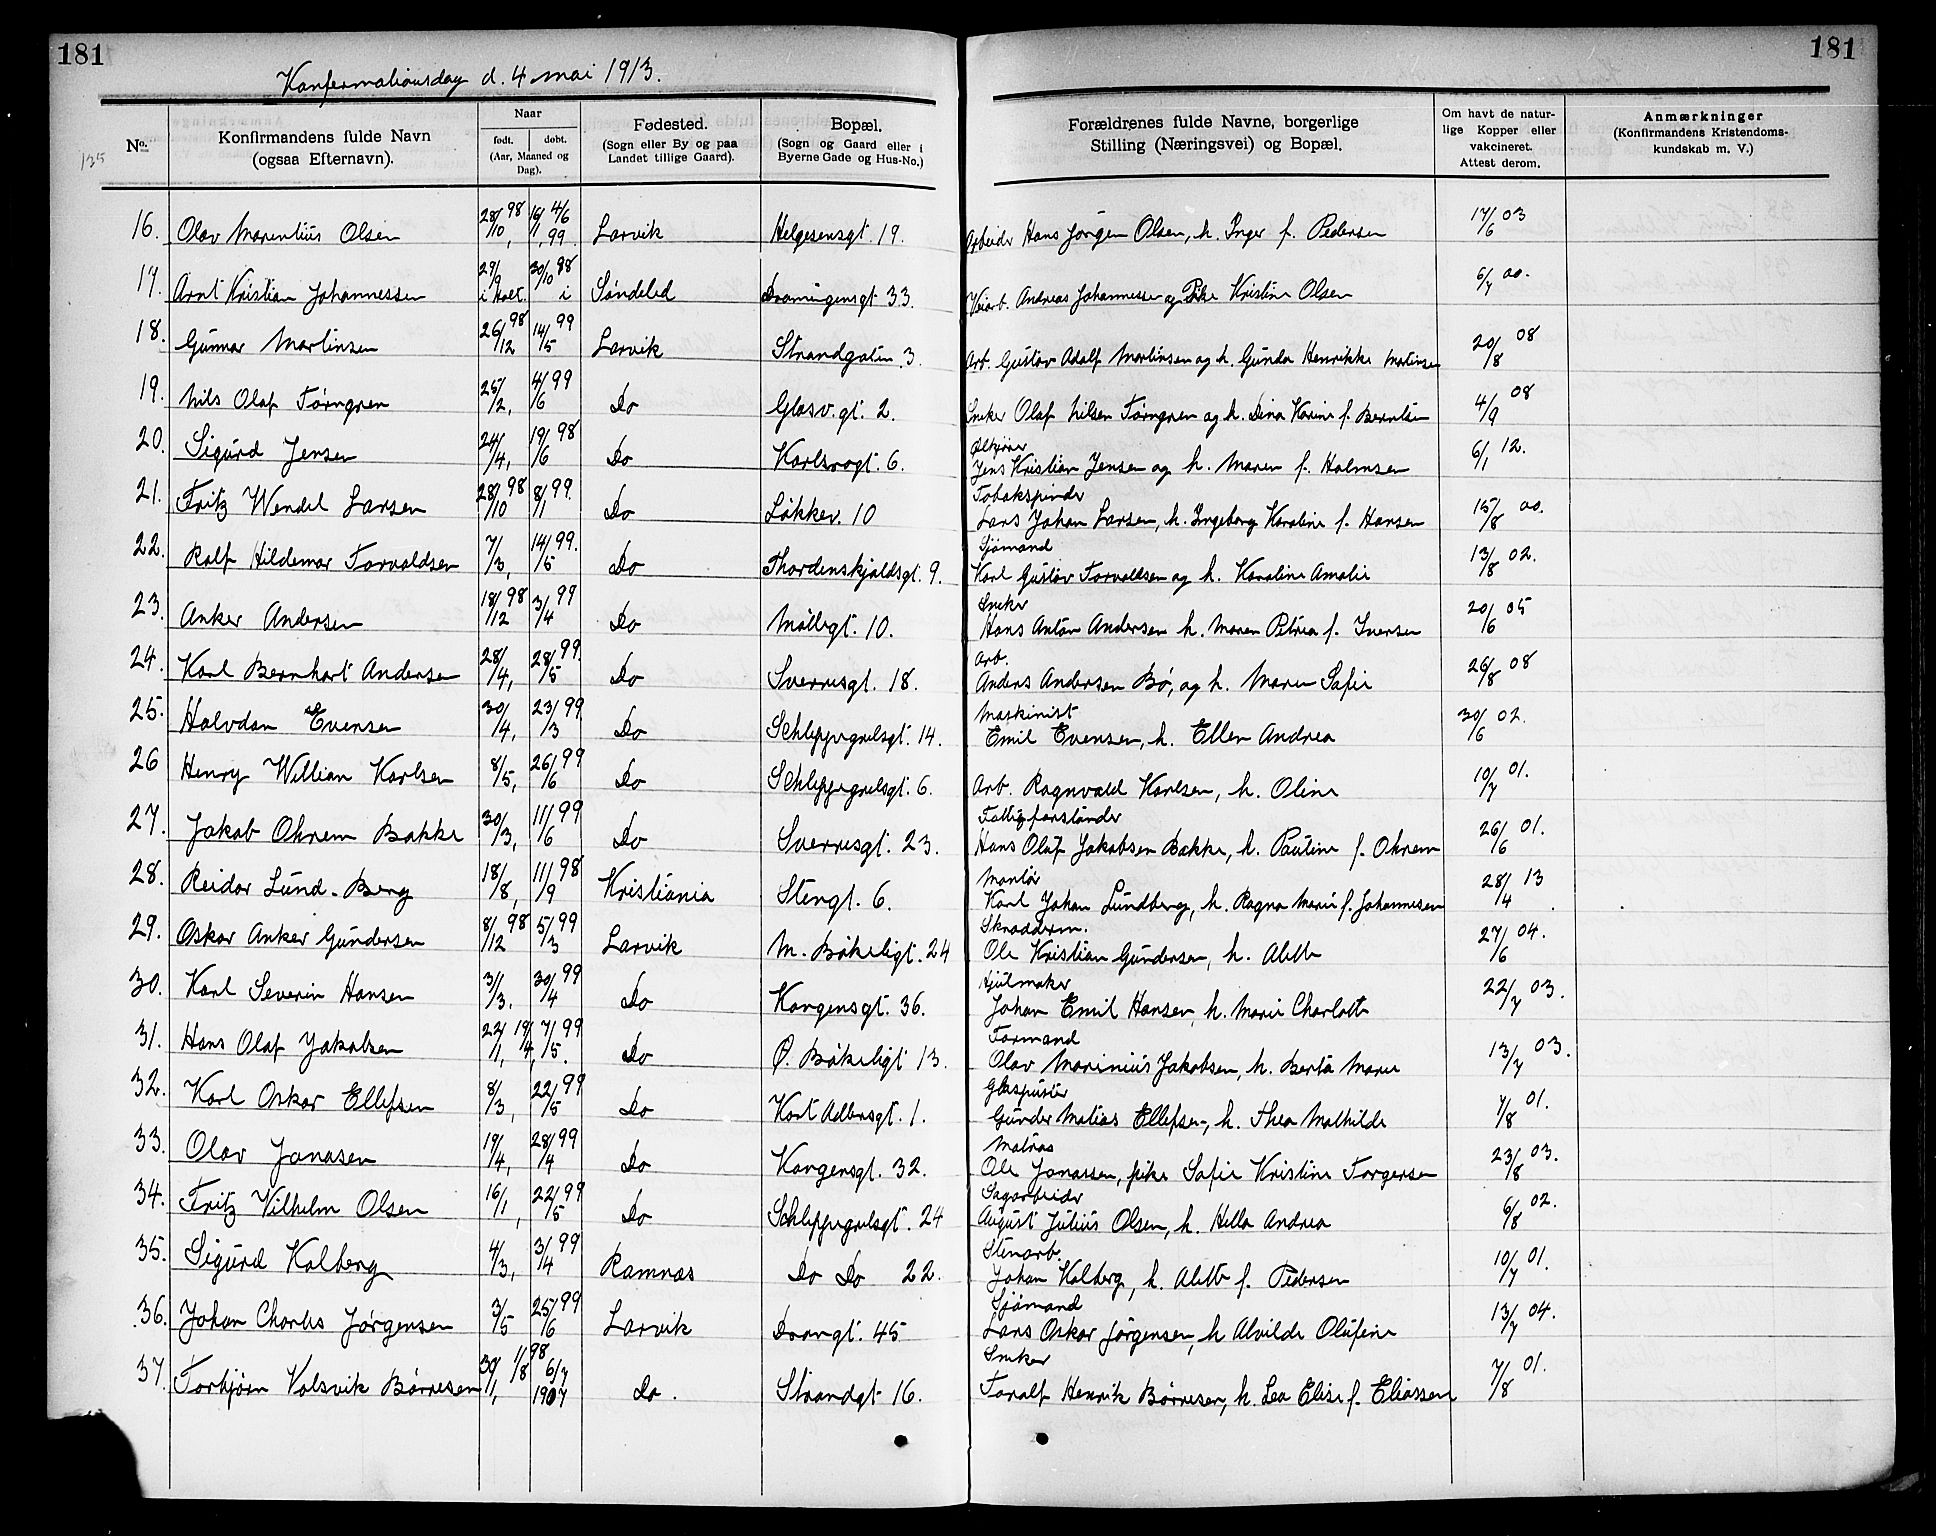 181
181
Konfermationsdag d. 4 mai 1913.
125
No.
Konfirmandens fulde Navn (ogsaa Efternavn).
Naar født. døbt. (Aar, Maaned og Dag).
Fødested. (Sogn eller By og paa Landet tillige Gaard).
Bopæl. (Sogn og Gaard eller i Byerne Gade og Hus-No.)
Forældrenes fulde Navne, borgerlige Stilling (Næringsvei) og Bopæl.
Om havt de naturlige Kopper eller vakcineret. Attest derom.
Anmærkninger (Konfirmandens Kristendomskundskab m. V.)
16. Olav Marentius Olsen 28/10 98 16/1 99 4/6 Larvik Helgesensgt. 19. Arbeider Hans Jørgen Olsen, h. Inger f. Pedersen 17/6 03
17. Arnt Kristian Johannessen 29/9 30/10 98 Søndeled 33. Veiarb. Andreas Johannessen og Pike Kristine Olsen 6/7 00.
18. Gunnar Martinsen 26/12 98 14/5 99 Larvik Strandgaten 3. Arb. Gustav Adolf Martinsen og h. Gunda Henrikke Martinsen 20/8 08
19. Nils Olaf Törngren 25/2, 4/6 99 Do Glasv.gt. 2. Sneker Olaf Nilsen Törngren og h. Dina Karine f. Berntsen 4/9 08
20. Sigurd Jensen 24/4, 19/6 98 Do Karlsrogt. 6. Ølkjører Jens Kristian Jensen og h. Maren f. Holmsen 6/1 12.
21. Fritz Wendel Larsen 28/10 98 8/1 99. Do Løkkev. 10 Tobakspinder Lars Johan Larsen, h. Ingeborg Karoline f. Hansen 15/8 00.
22. Ralf Hildemar Torvaldsen 7/3, 14/5 99. Do Thordenskjoldsgt. 9. Sjømand Karl Gustav Torvaldsen og h. Karoline Amalie 13/8 02.
23. Anker Andersen 18/12 98 3/4 99 Do Møllegt. 10. Sneker Hans Anton Andersen h. Maren Petrea f. Iversen 20/6 05
24. Karl Bernhart Andersen 28/4, 28/5 99. Do Sverresgt. 18. Arb. Anders Andersen Bø, og h. Maren Sofie 26/8 08
25. Halvdan Evensen 30/4, 23/3 99 Do Schleppegrelsgt. 14. Maskinist Emil Evensen, h. Ellen Andrea 30/6 02.
26 Henry Willian Karlsen 8/5, 26/6 99 Do Schleppegrelsgt. 6. Arb. Ragnvald Karlsen, h. Oline 10/7 01.
27. Jakob Ohrem Bakke 30/3, 11/6 99 Do Sverresgt. 23. Fattigforstander Hans Oluf Jakobsen Bakke, h. Pauline f. Ohrem 26/6 01.
28. Reidar Lund-Berg 18/8, 11/9 98 Kristiania Stengt. 6. Montør Karl Johan Lundberg, h. Ragna Marie f. Johannesen 28/4 13
29. Oskar Anker Gundersen 8/12 98 5/3 99 Larvik M. Bøkeligt. 24 Skradderm. Ole Kristian Gundersen, h. Alette 27/6 04.
30. Karl Severin Hansen 3/3, 30/4 99 Do Kongensgt. 36. Hjulmaker Johan Emil Hansen, h. Marie Charlotte 22/7 03.
31. Hans Olaf Jakobsen 22/1, 19/4, 7/5. 99 Do Ø. Bøkeligt 13. Formand Olav Marinius Jakobsen, h. Berta Marie 13/7 03.
32. Karl Oskar Ellefsen 8/3, 22/5 99 Do Kort Adlersgt. 1. Glaspuster Gunder Matias Ellefsen, h. Thea Mathilde 7/8 01.
33. Olav Jonasen 19/4, 28/4 99 Do Kongensgt. 32. Matros Ole Jonassen, pike Sofie Kristine Torgersen 23/8 03.
34. Fritz Vilhelm Olsen 16/1, 22/5 99 Do Schleppegrelsgt. 24 Sagarbeider August Julius Olsen, h. Hella Andrea 6/8 02.
35. Sigurd Kolberg 4/3, 3/4 99 Ramnæs Do Do 22. Stenarb. Johan Kolberg, h. Alette f. Pedersen 10/7 01.
36. Johan Charles Jørgensen 3/5 25/6 99 Larvik Drongt. 45 Sjømand Lars Oskar Jørgensen, h Alvilde Olufine 13/7 04.
37. Torbjørn Valsvik Børresen 30/1, 1/8 98 6/7 1907 Do. Strandgt 16. Sneker Toralf Henrik Børresen, h. Lea Elise f. Eliassen 7/8 01.